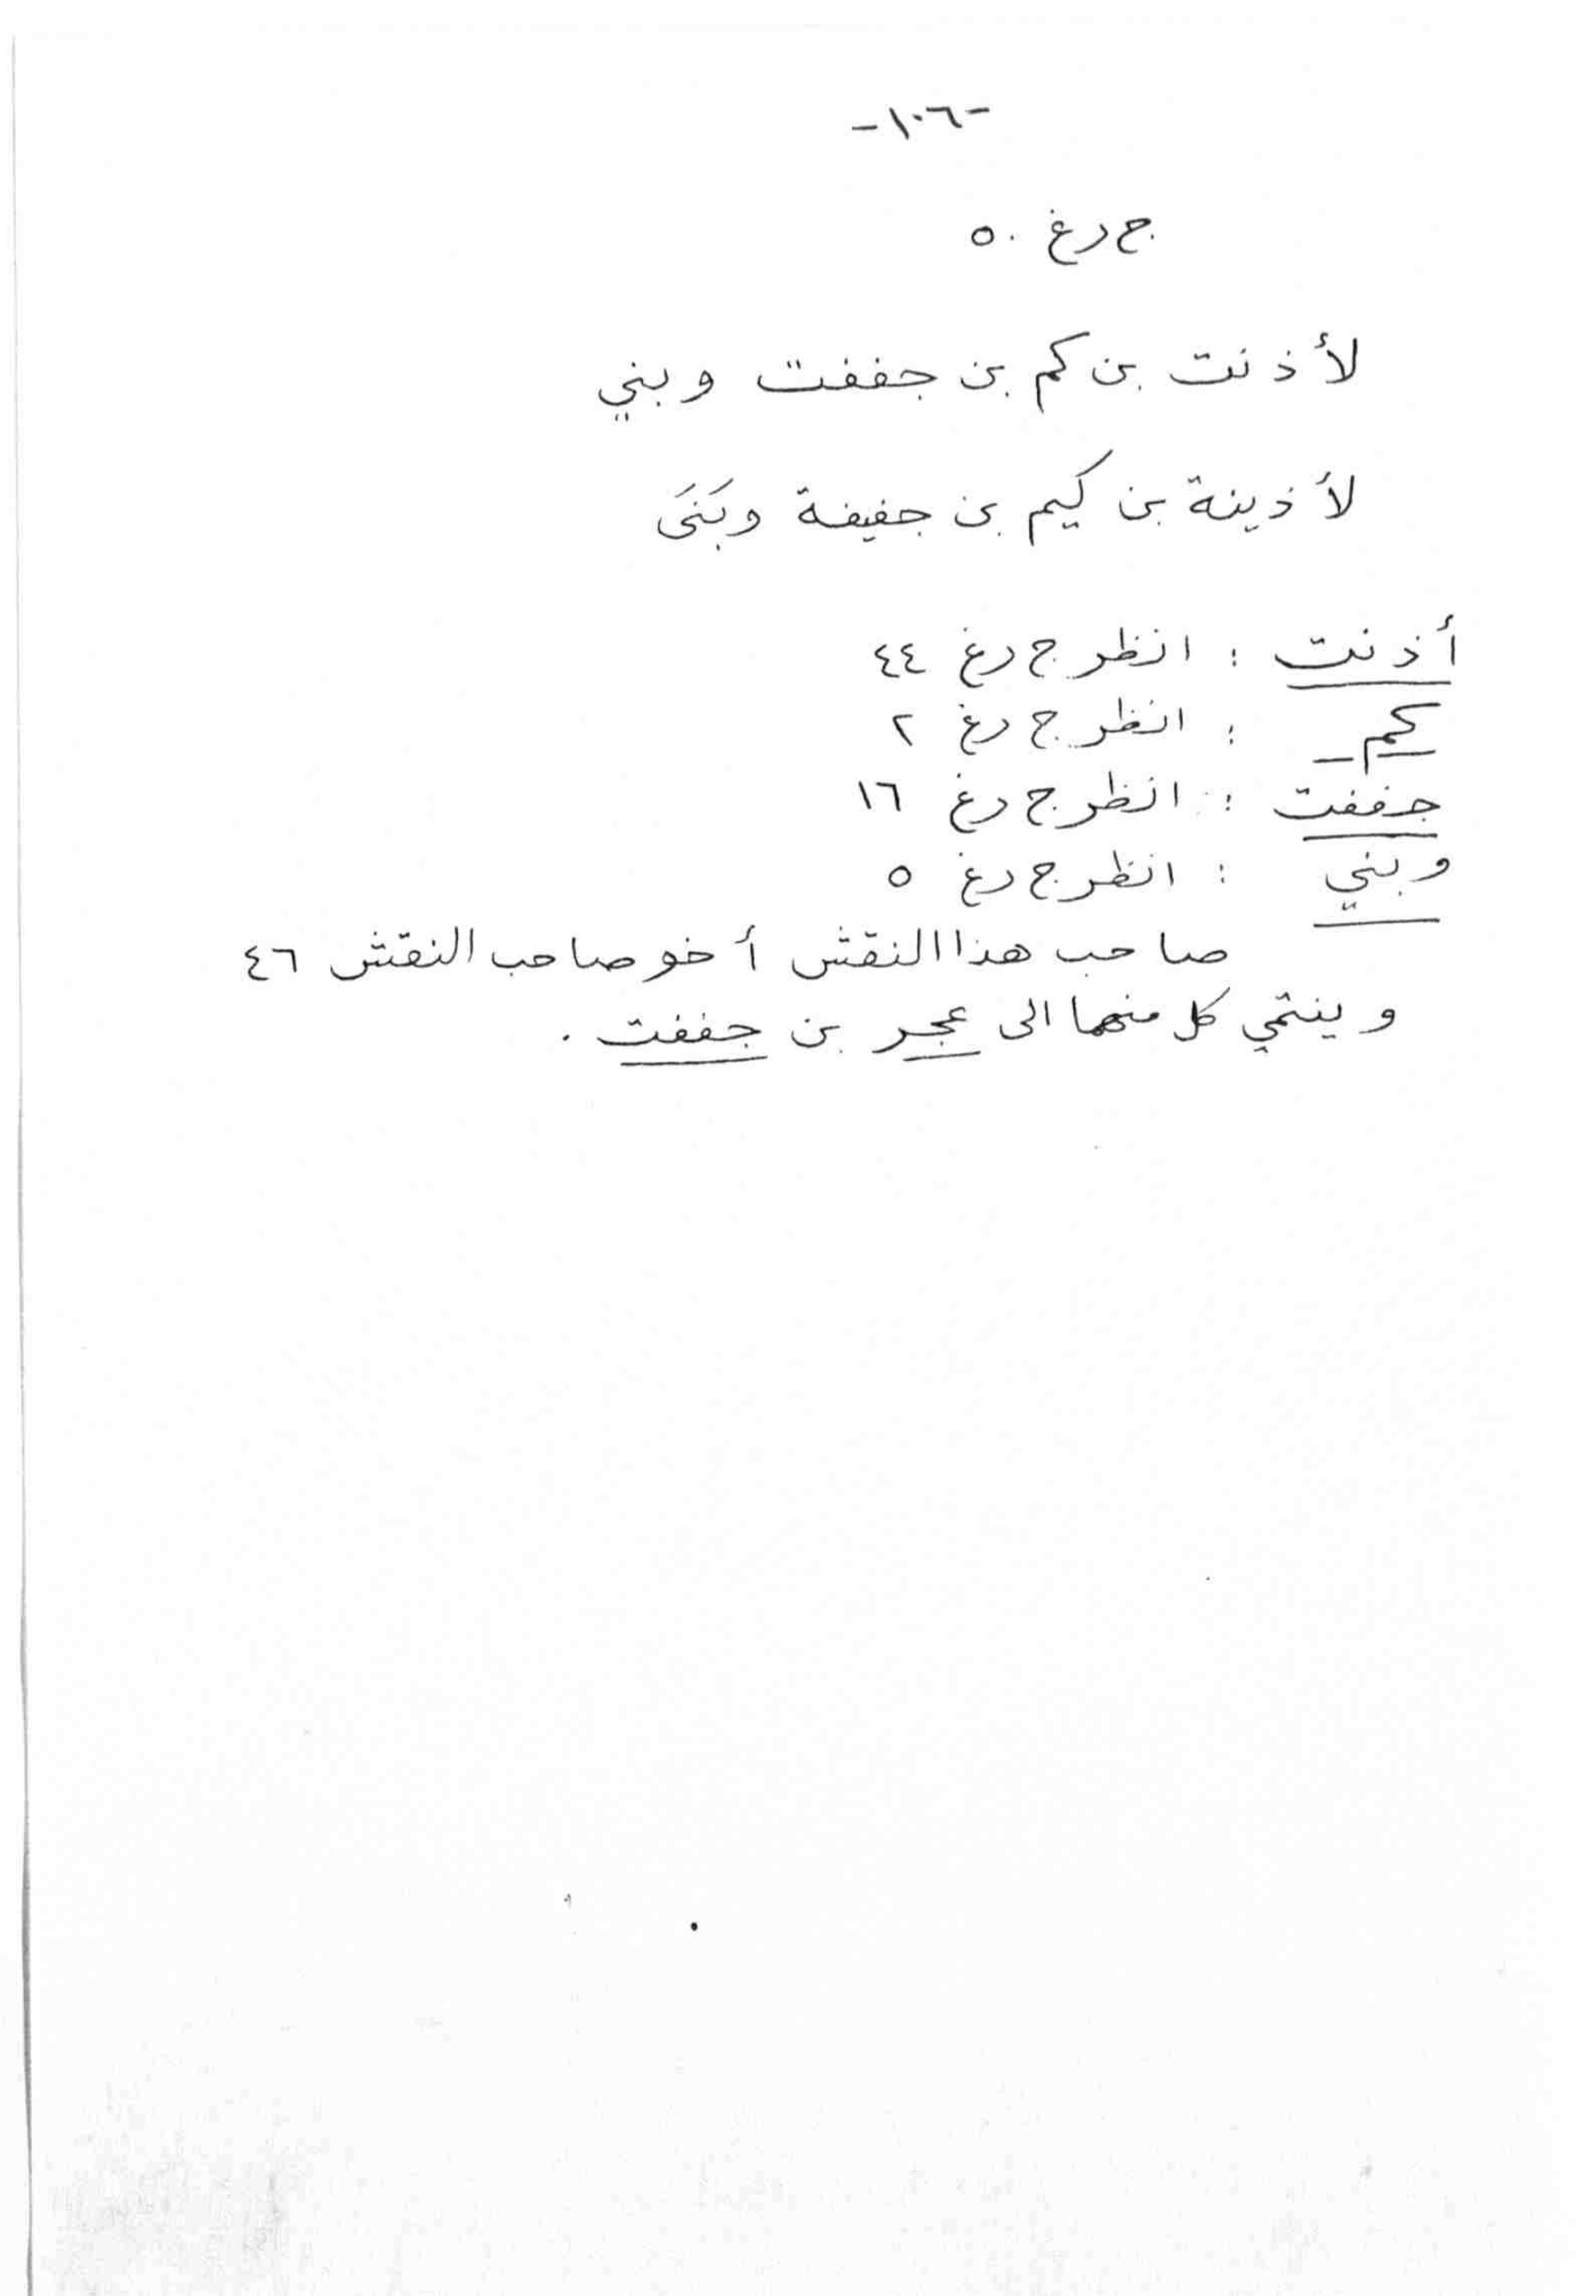 -١٠٦-
ج رغ ٥٠
لأذنت بن كم بن جففت وبني
لأذينة بن كيم بن جفيفة وبَنَى
أذنت : انظر ج رغ ٤٤
كم : انظر ج رغ ٢
جففت : انظر ج رغ ١٦
وبني : انظر ج رغ ٥
صاحب هذا النقش أخو صاحب النقش ٤٦
وينتمي كل منهما الى عجر بن جففت .